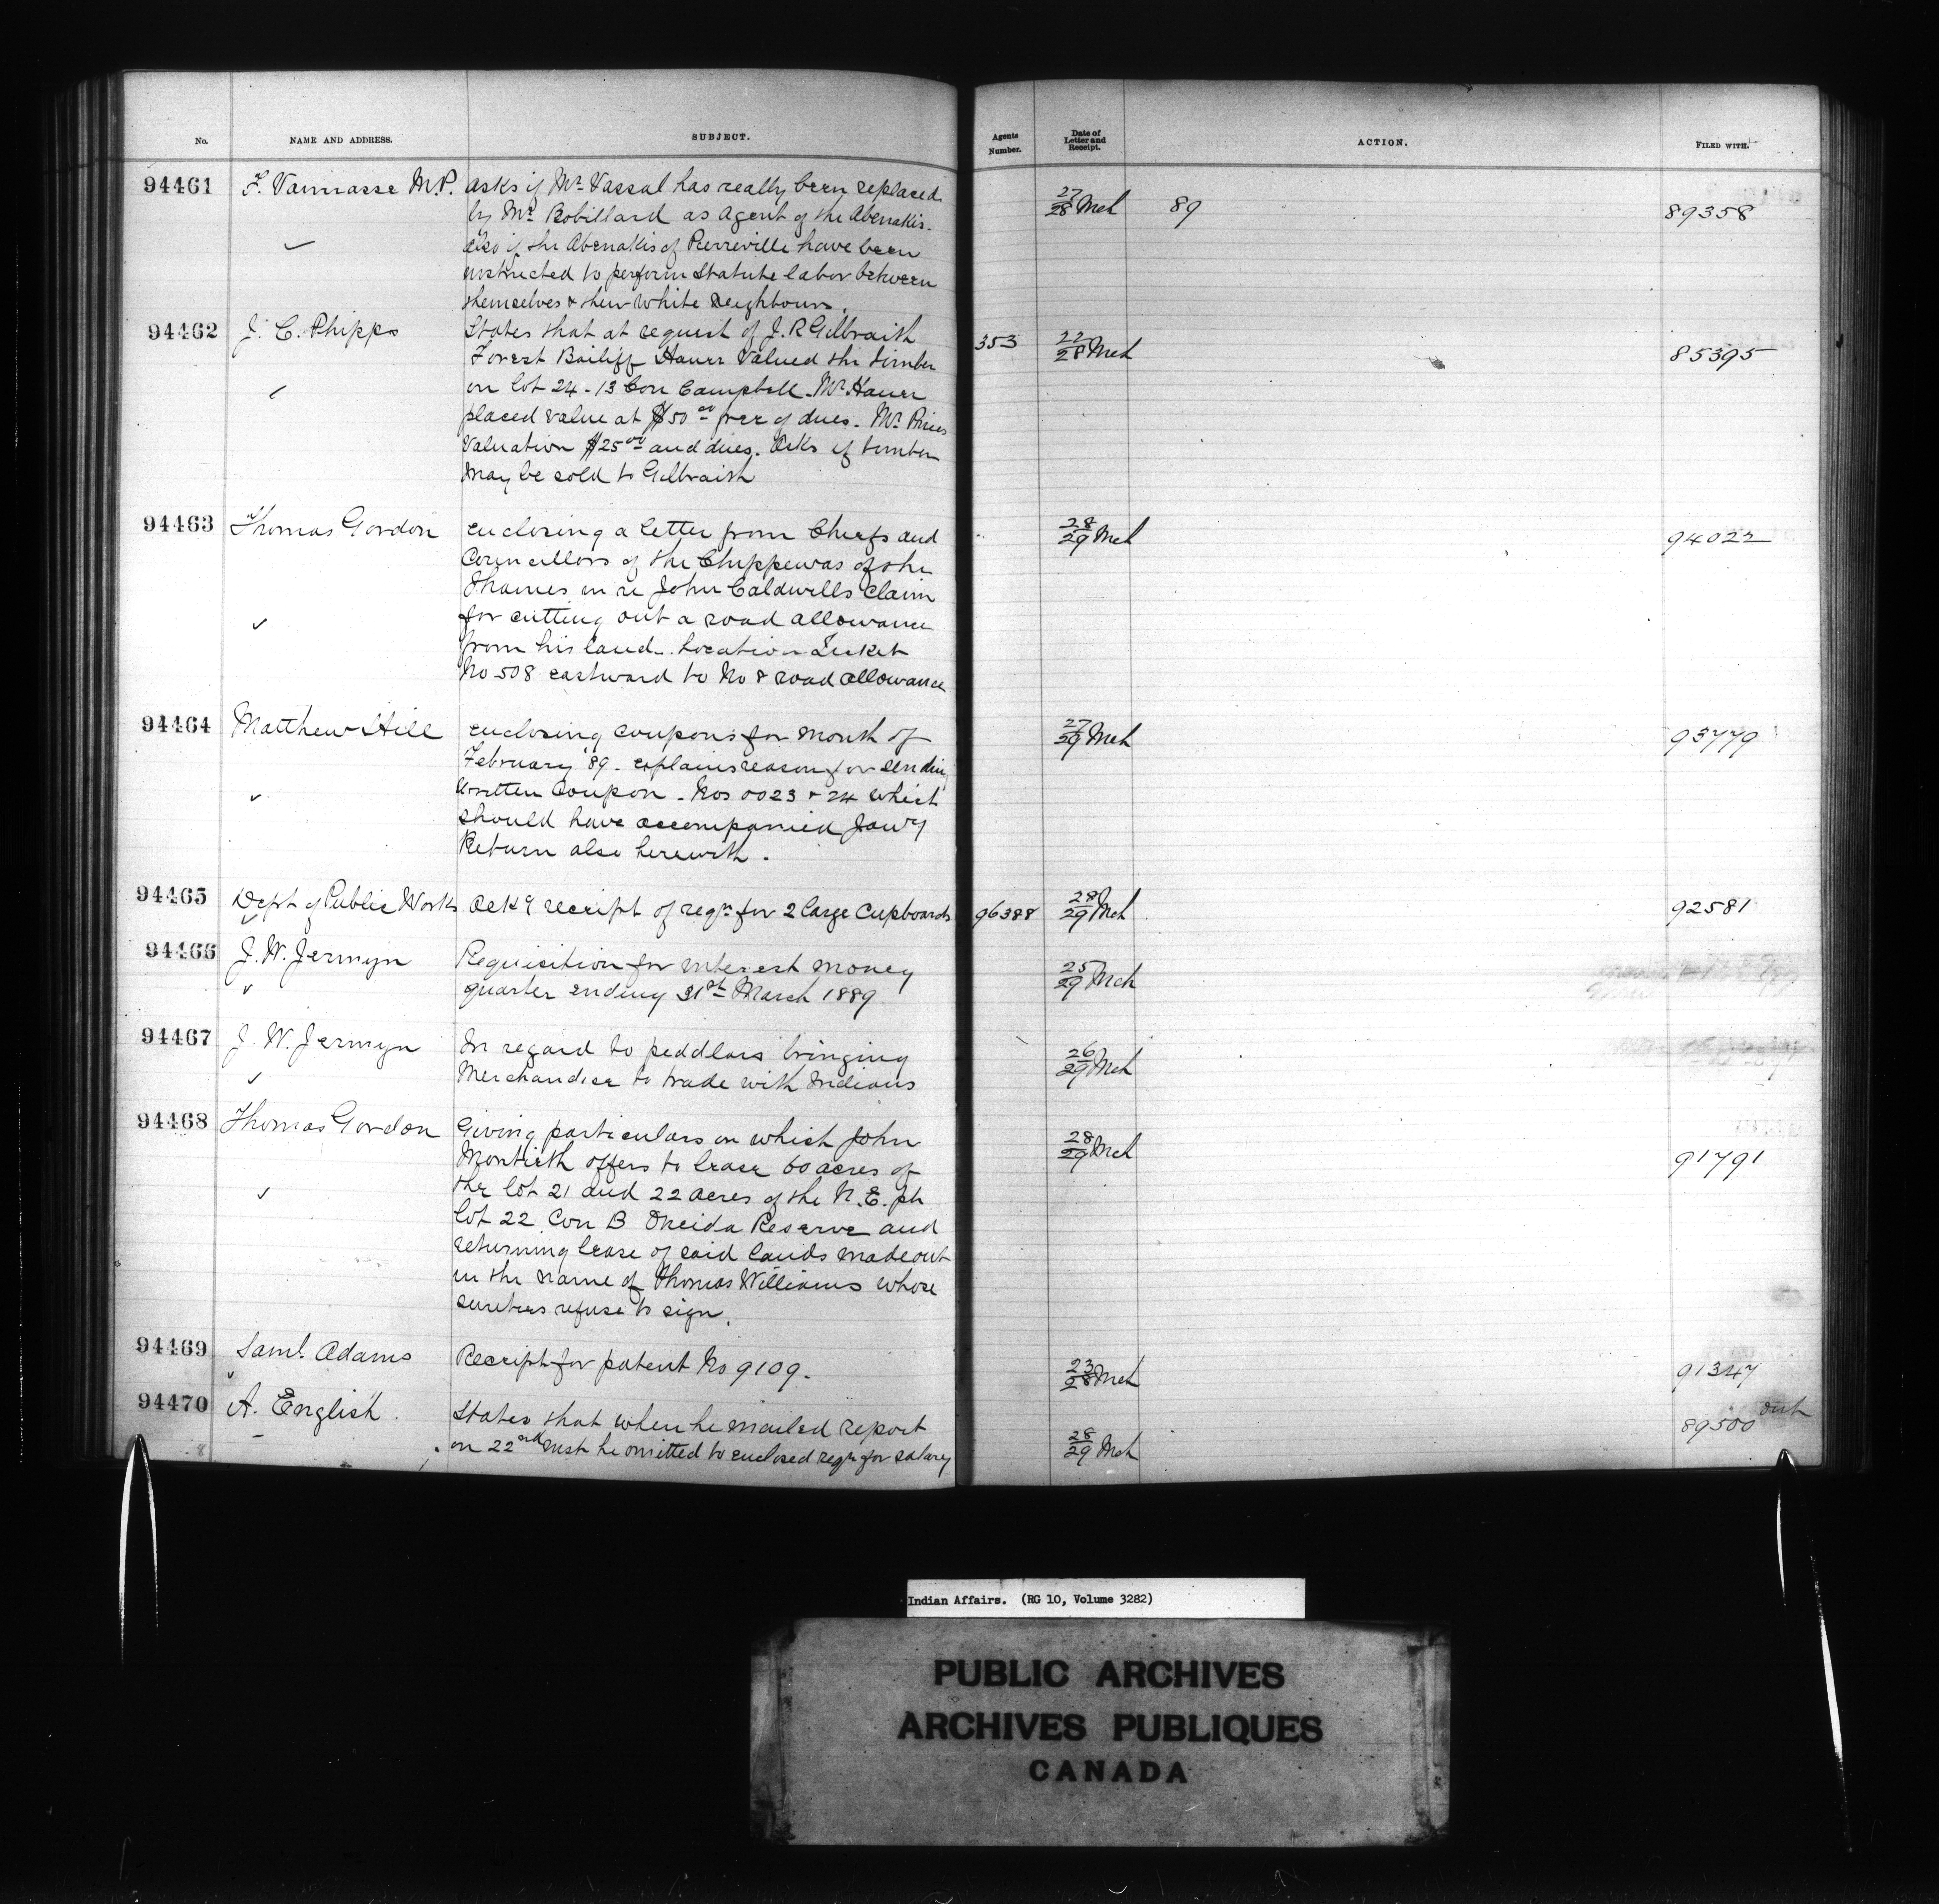 No. NAME AND ADDRESS. SUBJECT. Agents Number. Date of Letter and Receipt. ACTION. FILED WITH.
94461 F. Vannasse M.P. asks if Mr. Vassal has really been replaced 27/28 Mch 89 89358
by Mr. Robillard as Agent of the Abenakis.
also if the Abenakis of Pierreville have been
instructed to perform Statute labor between
themselves & their White Neighbours.
94462 J. C. Phipps States that at request of J. R Gilbraith 353 22/28 Mch 85395
Forest Bailiff Hauer Valued the timber
on lot 24 - 13 Con Campbell. Mr. Hauer
placed value at $50 00 free of dues. Mr. Prices
Valuation $25 00 and dues. Asks if timber
may be sold to Gilbraith
94463 Thomas Gordon enclosing a letter from Chiefs and 28/29 Mch 94022
Councillors of the Chippewas of the
Thames in re John Caldwells Claim
for cutting out a road allowance
from his land. Location Ticket
No 508 eastward to No 8 road allowance
94464 Matthew Hill enclosing coupons for month of 27/29 Mch 93779
February '89. explains reason for sending
written Coupon. Nos 0023 & 24 which
should have accompanied Jany
Return also herewith.
94465 Dept of Public Works Ack'g receipt of reqn for 2 large Cupboards 96388 28/29 Mch 92581
94466 J. W. Jermyn Requisition for interest money 25/29 Mch
quarter ending 31st March 1889
94467 J. W. Jermyn In regard to peddlars bringing 26/29 Mch
Merchandise to trade with Indians
94468 Thomas Gordon Giving particulars on which John 28/29 Mch 91791
Montieth offers to lease 60 acres of
the lot 21 and 22 acres of the N.E. pt
lot 22 Con B Oneida Reserve and
returning lease of said lands made out
in the name of Thomas Williams whose
sureties refuse to sign.
94469 Saml. Adams Receipt for patent No 9109. 23/28 Mch 91347
94470 A. English States that when he mailed report 28/29 Mch 89500 out
on 22nd inst he omitted to enclosed reqn for salary
Indian Affairs. (RG 10, Volume 3282)
PUBLIC ARCHIVES
ARCHIVES PUBLIQUES
CANADA